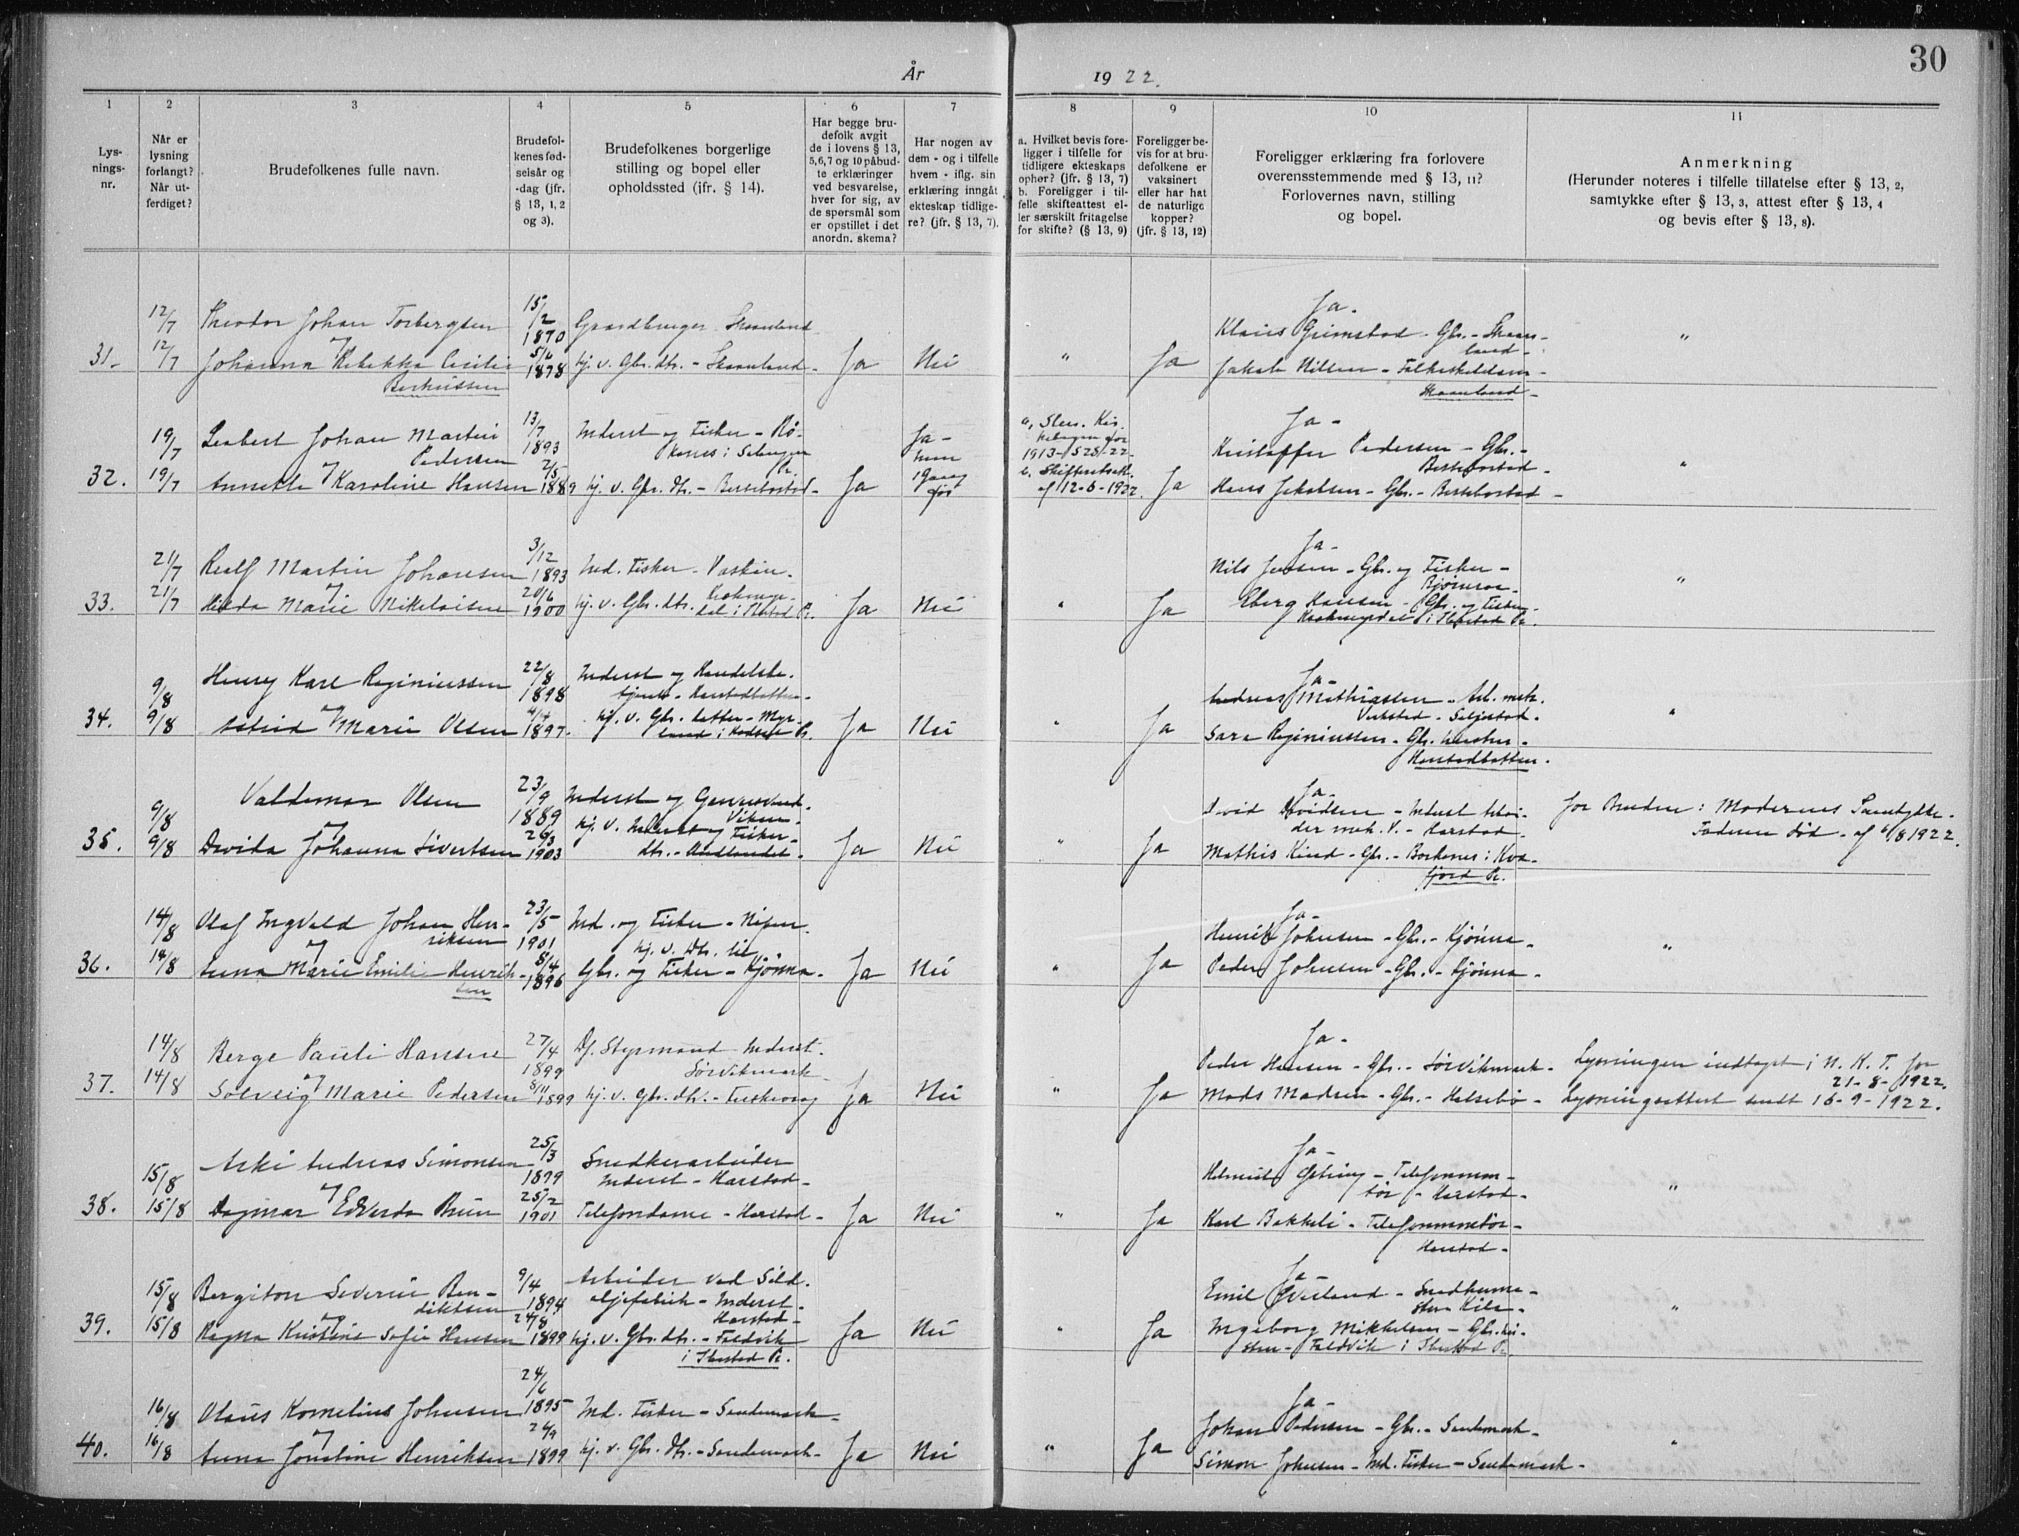 30
År 1922.
1 2 3 4 5 6 7 8 9 10 11
Lysnings-nr.
Når er lysning forlangt? Når utferdiget?
Brudefolkenes fulle navn.
Brudefolkenes fødselsår og -dag (jfr. § 13, 1, 2 og 3).
Brudefolkenes borgerlige stilling og bopel eller opholdssted (jfr. § 14).
Har begge brudefolk avgit de i lovens § 13, 5, 6, 7 og 10 påbudte erklæringer ved besvarelse, hver for sig, av de spørsmål som er opstillet i det anordn. skema?
Har nogen av dem - og i tilfelle hvem - iflg. sin erklæring inngåt ekteskap tidligere? (jfr. § 13, 7).
a. Hvilket bevis foreligger i tilfelle for tidligere ekteskaps ophør? (jfr. § 13, 7)
b. Foreligger i tilfelle skifteattest eller særskilt fritagelse for skifte? (§ 13, 9)
Foreligger bevis for at brudefolkene er vaksinert eller har hat de naturlige kopper? (jfr. § 13, 12)
Foreligger erklæring fra forlovere overensstemmende med § 13, 11? Forlovernes navn, stilling og bopel.
Anmerkning
(Herunder noteres i tilfelle tillatelse efter § 13, 2, samtykke efter § 13, 3, attest efter § 13, 4 og bevis efter § 13, 8).
12/7 Theodor Johan Torbergsen 15/2 1870 Gaardbruger Skaanland Ja -
Klaus Grimstad - Gbr. - Skaanland -
31. 12/7 og Johanna Rebekka Cecilie Berteussen 5/6 1878 hj. v. Gbr. dtr. - Skaanland - Ja Nei " Ja Jakob Nilsen - Skaanland - "
19/7 Johan Martin Pedersen 13/7 1893 Inderst og Fisker - i Salangen Pr. Ja - 1 gang før 1913 - 22 - Ja -
Kristoffer Pedersen - Gbr. -
32. 19/7 og Annette Karoline Hansen 2/5 1889 hj. v. Gbr. dtr. - Ja b. Skifteattest af 12-6-1922. Ja Hans Jakobsen - Gbr. - "
21/7 Martin Johansen 3/12 1893 Ind. Fisker - Ja -
Nils Jensen - Gbr. og Fisker -
33. 21/7 og Hilda Marie Nikolaisen 20/6 1900 hj. v. Gbr. dtr. i Ibestad Pr. Ja Nei " Ja Hansen - Gbr. og Fisker - i Ibestad Pr. "
9/8 Henry Karl Reginiussen 22/8 1898 Inderst og Handelsbetjent - Harstadbotten - Ja -
Andreas Mathiassen - Arb. mek. Verksted - Seljestad -
34. 9/8 og Astrid Marie Olsen 4/4 1897. hj. v. Gbr. datter - Myrland i Hadsel Pr. Ja Nei " Ja Sara Reginiussen - Gbr. - Harstadbotten. "
9/8 Valdemar Olsen 23/9 1889 Inderst og - Ja -
David Davidsen - Inderst Arbeider mek. V. - Harstad - for Bruden: Moderens Samtykke -
35. 9/8 og Davida Johanna Sivertsen 26/3 1903 hj. v. Inderst og Fisker dtr. - Ja Nei " Ja Mathis Kind - Gbr. - Borkenes i Kvæfjord Pr. Faderen død - af 6/8 1922.
14/8 Olaf Ingvald Johan Henriksen 23/5 - 1901 Ind. og Fisker - Nipen. Ja -
Henrik Johnsen - Gbr. - Kjønna -
36. 14/8 og Anna Marie Emilie Henriksen 8/4 1896 hj. v. Dtr. til Gbr. og Fisker - Kjønna - Ja Nei " Ja Peder Johnsen - Gbr. - Kjønna - "
14/8 Berge Pauli Hansen 27/4 1899 Df. Styrmand Inderst - Sørvikmark - Ja -
Peder Hansen - Gbr. - Sørvikmark - Lysningen indtaget i N. K. T. for 21-8-1922.
37. 14/8 og Solveig Marie Pedersen 8/11 1899 hj. v. Gbr. dtr. - Ja Nei " Ja Mads Madsen - Gbr. - Halsebø - Lysningsattest sendt 16-9-1922.
15/8 Andreas Simonsen 25/3 1899 Snedkerarbeider Inderst - Harstad - Ja -
- Telefonmontør - Harstad -
38. 15/8 og Dagmar Edvarda Bruun 25/2 1901 Telefondame - Harstad - Ja Nei " Ja Karl Bakkeli - Telefonmontør - Harstad - "
15/8 Bergiton Severin Bendiktsen 9/4 1894 Arbeider ved Sildoljefabrik - Inderst - Harstad - Ja -
Emil - Snedkermester Kila -
39. 15/8 og Ragna Kristine Sofie Hansen 24/8 1899 hj. v. Gbr. dtr. - Faldvik i Ibestad Pr. Ja Nei " Ja Ingeborg Mikkelsen - Faldvik i Ibestad Pr. "
16/8 Olaus Kornelius Johnsen 24/6 1895 - Ind. Fisker - Sandemark - Ja -
Johan Pedersen - Gbr. - Sandemark -
40. 16/8 og Anna Jonetine Henriksen 24/9 1899 hj. v. Gbr. Dtr. - Sandemark - Ja Nei " Ja Simon Johnsen - Ind. Fisker - Sandemark - "